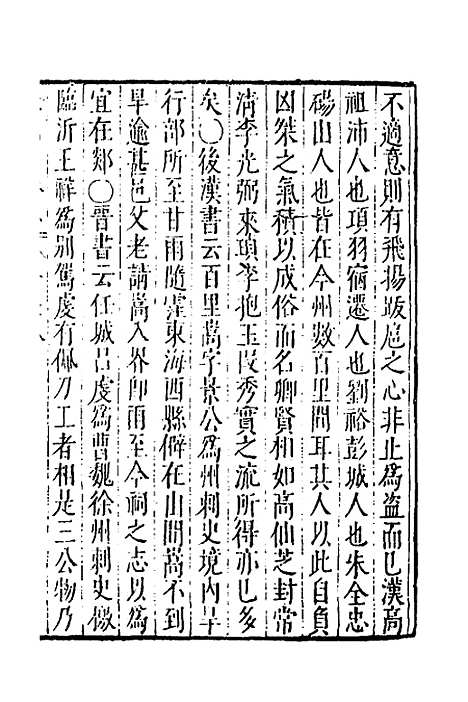 不適意則有飛揚跋扈之心非止爲盜而已漢高
祖沛人也項羽宿遷人也劉裕彭城人也朱全忠
碭山人也皆在今州數百里間耳其人以此自負
凶桀之氣積以成俗而名卿賢相如高仙芝封常
淸李光弼來瑱李抱玉段秀實之流所得亦已多
矣○後漢書云百里嵩字景公爲州刺史境內旱
行部所至甘雨隨霔東海西縣僻在山間嵩不到
旱逾甚邑父老請嵩入界即雨至今祠之志以爲
宜在郯○晉書云任城呂虔爲曹魏徐州刺史檄
臨沂王祥爲別駕虔有佩刀工者相是三公物乃